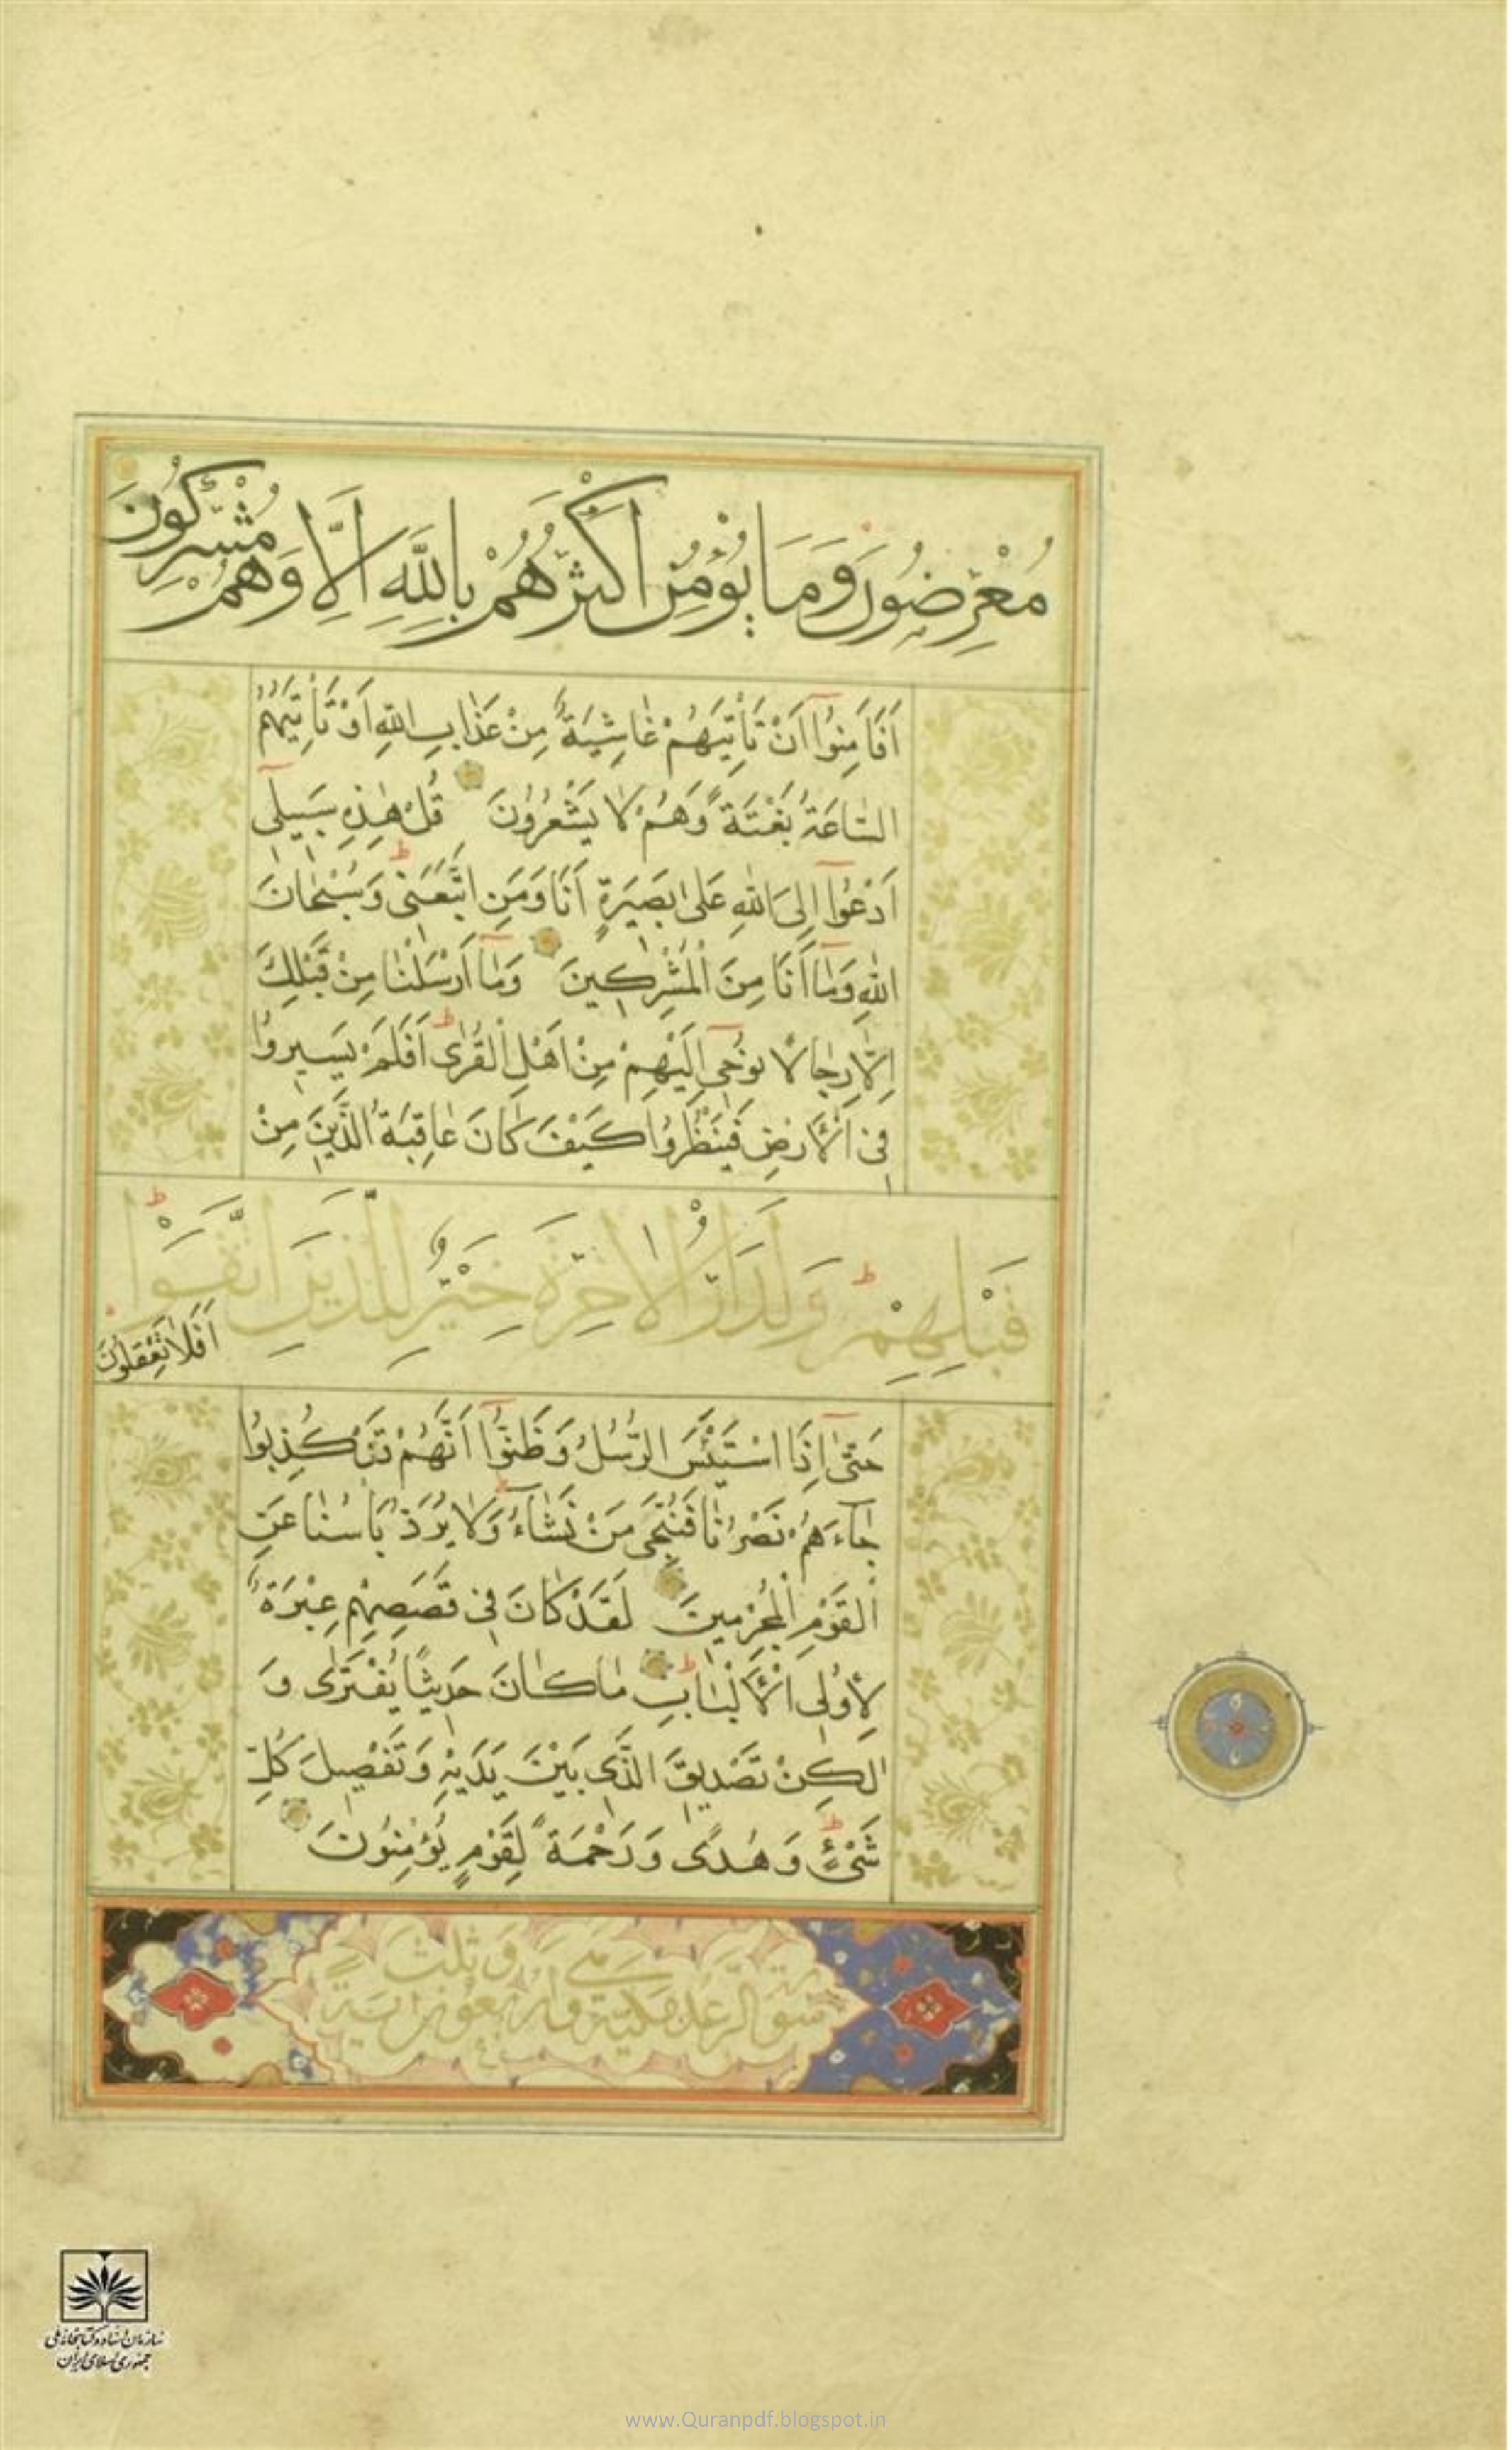 مُعْرِضُونَ وَمَا يُؤْمِنُ اَكْثَرُهُمْ بِاللَّهِ اِلَّا وَهُمْ مُشْرِكُونَ
اَفَاَمِنُوٓا اَنْ تَاْتِيَهُمْ غَاشِيَةٌ مِنْ عَذَابِ اللهِ اَوْ تَاْتِيَهُمُ
السَّاعَةُ بَغْتَةً وَهُمْ لَا يَشْعُرُونَ قُلْ هٰذِهِ سَبِيلٓى
اَدْعُوٓا اِلَى اللهِ عَلٰى بَصِيرَةٍ اَنَا وَمَنِ اتَّبَعَنٖى وَسُبْحَانَ
اللهِ وَمَٓا اَنَا مِنَ الْمُشْرِكٖينَ وَمَٓا اَرْسَلْنَا مِنْ قَبْلِكَ
اِلَّا رِجَالًا نُوحٖٓى اِلَيْهِمْ مِنْ اَهْلِ الْقُرٰى اَفَلَمْ يَسٖيرُوا
فِى الْاَرْضِ فَيَنْظُرُوا كَيْفَ كَانَ عَاقِبَةُ الَّذٖينَ مِنْ
قَبْلِهِمْ وَلَدَارُ الْاٰخِرَةِ خَيْرٌ لِلَّذِينَ اتَّقَوْا
اَفَلَا تَعْقِلُونَ
حَتّٰٓى اِذَا اسْتَيْئَسَ الرُّسُلُ وَظَنُّوٓا اَنَّهُمْ قَدْ كُذِبُوا
جَآءَهُمْ نَصْرُنَا فَنُجِّىَ مَنْ نَشَآءُ وَلَا يُرَدُّ بَاْسُنَا عَنِ
الْقَوْمِ الْمُجْرِمٖينَ لَقَدْ كَانَ فٖى قَصَصِهِمْ عِبْرَةٌ
لِاُولِى الْاَلْبَابِ مَا كَانَ حَدٖيثًا يُفْتَرٰى وَ
لٰكِنْ تَصْدٖيقَ الَّذٖى بَيْنَ يَدَيْهِ وَتَفْصٖيلَ كُلِّ
شَىْءٍ وَهُدًى وَرَحْمَةً لِقَوْمٍ يُؤْمِنُونَ
سورة الرعد مكية واربعون اية
سازمان اسناد و کتابخانه ملی
جمهوری اسلامی ایران
www.Quranpdf.blogspot.in